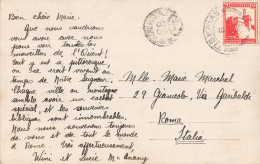 Ben chère Marie.
Que nous voudrions
vous avoir avec nous
pour voir toutes les
merveilles de l'Orient!
Tout y est si pittoresque,
on se croit vivant au
temps de Notre Seigneur.
Chaque ville ou montagne
semble avoir ce cachet
spécial et les souvenirs
bibliques sont innombrables.
Nous nous servons toujours
de vous et de tout le monde
à Rome. Très affectueusement,
Wini et Lucie Mc
Mlle. Marie Marchal
29 Gianicolo, Via Garibaldi
Roma
Italia